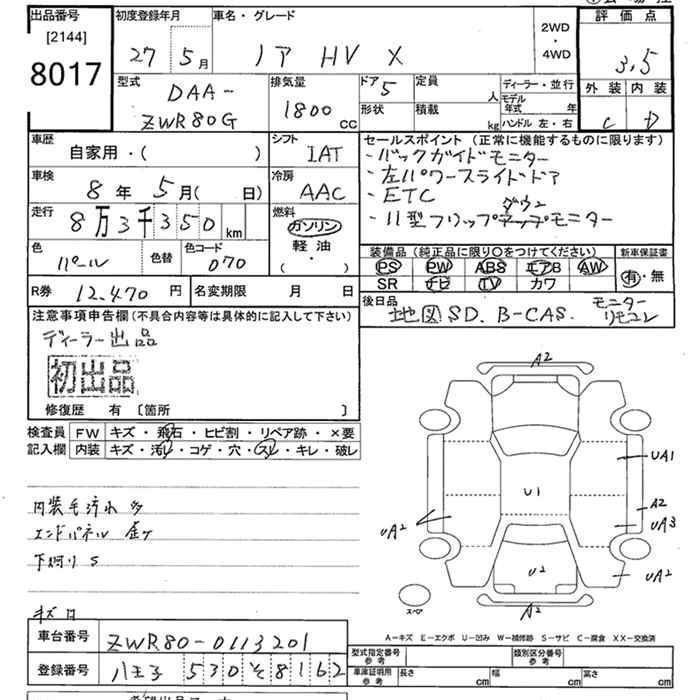 出品番号
[2144]
8017
初度登録年月
27 5月
車名・グレード
ノア HV X
2WD
・
4WD
評価点
3.5
外装 内装
C D
型式
DAA-
ZWR80G
排気量
1800 cc
ドア 5
形状
定員 人
積載 kg
ディーラー・並行
モデル年式 年
ハンドル 左・右
車歴
自家用・( )
シフト
IAT
車検
8年 5月( 日)
冷房
AAC
走行
8万3千350 km
燃料
ガソリン
軽油
( ・ )
色
パール
色替
色コード
070
R券 12,470 円
名変期限 月 日
セールスポイント (正常に機能するものに限ります)
・バックガイドモニター
・左パワースライドドア
・ETC
ダウン
・11型フリップアップモニター
装備品 (純正品に限り○をつけてください)
PS PW ABS エアB AW
SR ナビ TV カワ
新車保証書
有・無
後日品
地図SD. B-CAS. モニターリモコン
注意事項申告欄(不具合内容等は具体的に記入して下さい)
ディーラー出品
初出品
修復歴 有 〔箇所 〕
検査員記入欄
FW キズ・飛石・ヒビ割・リペア跡・×要
内装 キズ・汚レ・コゲ・穴・スレ・キレ・破レ
内装毛汚れ多
エンドパネル
S
キズ
A2
UA1
U1
A2
UA3
UA2
U2
UA2
スペア
A2
A-キズ E-エクボ U-凹み W-補修跡 S-サビ C-腐食 XX-交換済
車台番号 ZWR80-0113201
登録番号 八王子 530 そ 8162
型式指定番号 参考
類別区分番号 参考
車庫証明用 参考
長さ cm 幅 cm 高さ cm